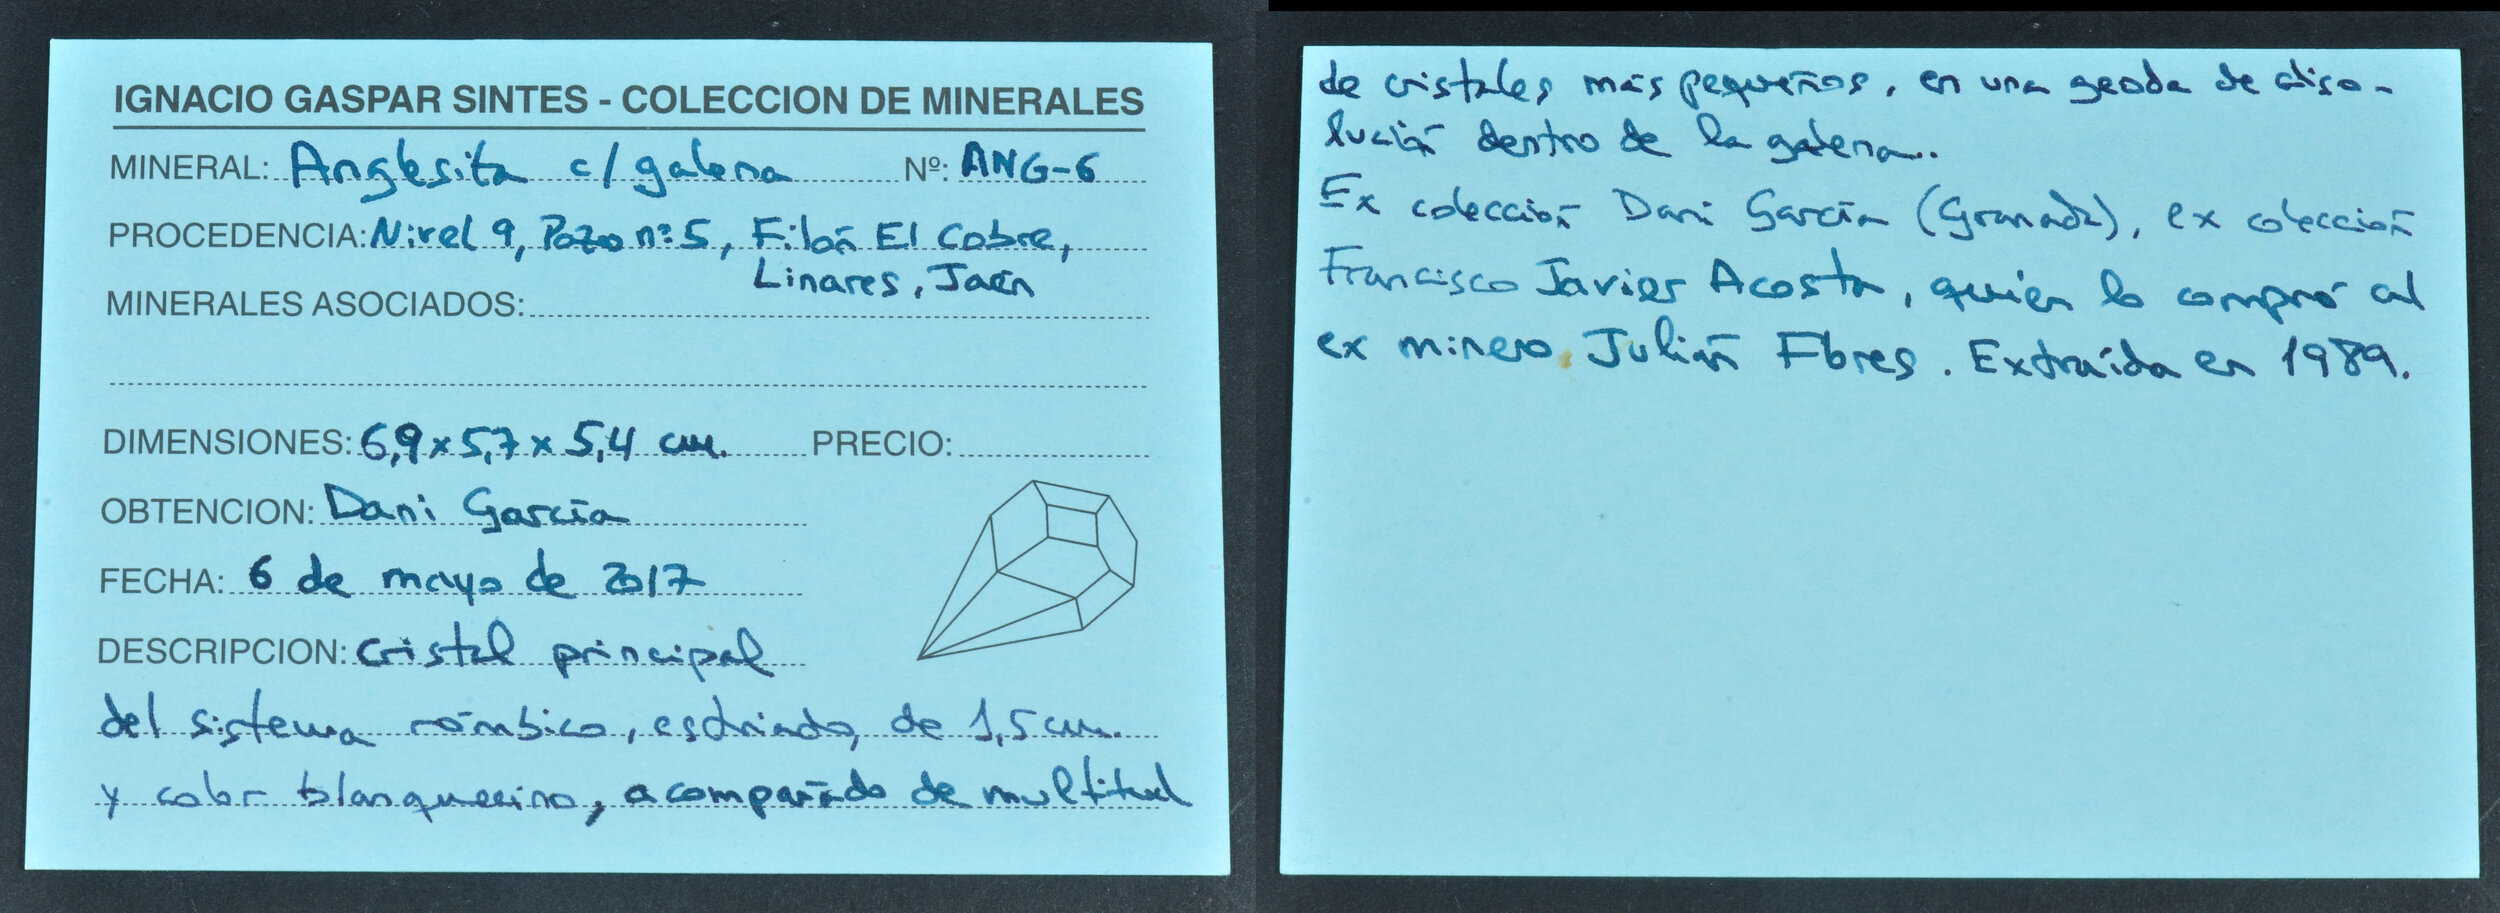 IGNACIO GASPAR SINTES - COLECCION DE MINERALES
MINERAL: Anglesita c/ galena Nº: ANG-6
PROCEDENCIA: Nivel 9, Pozo nº 5, Filón El Cobre,
Linares, Jaén
MINERALES ASOCIADOS:
DIMENSIONES: 6,9 x 5,7 x 5,4 cm. PRECIO:
OBTENCION: Dani García
FECHA: 6 de mayo de 2017
DESCRIPCION: Cristal principal
del sistema rómbico, estriado, de 1,5 cm.
y color blanquecino, acompañado de multitud
de cristales más pequeños, en una geoda de diso-
lución dentro de la galena.
Ex colección Dani García (Granada), ex colección
Francisco Javier Acosta, quien lo compró al
ex minero Julián Flores. Extraída en 1989.